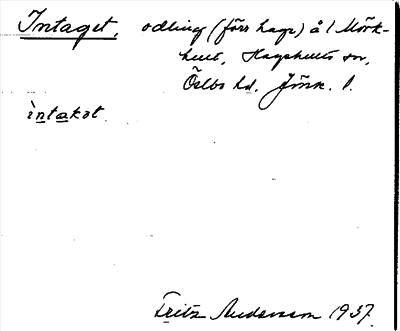 Intaget, odling (förr hage) å 1 Mörk-
hult, Hagshults sn,
Östbo hd. Jönk. l.
ìntakət
Fritz Andersson 1937.